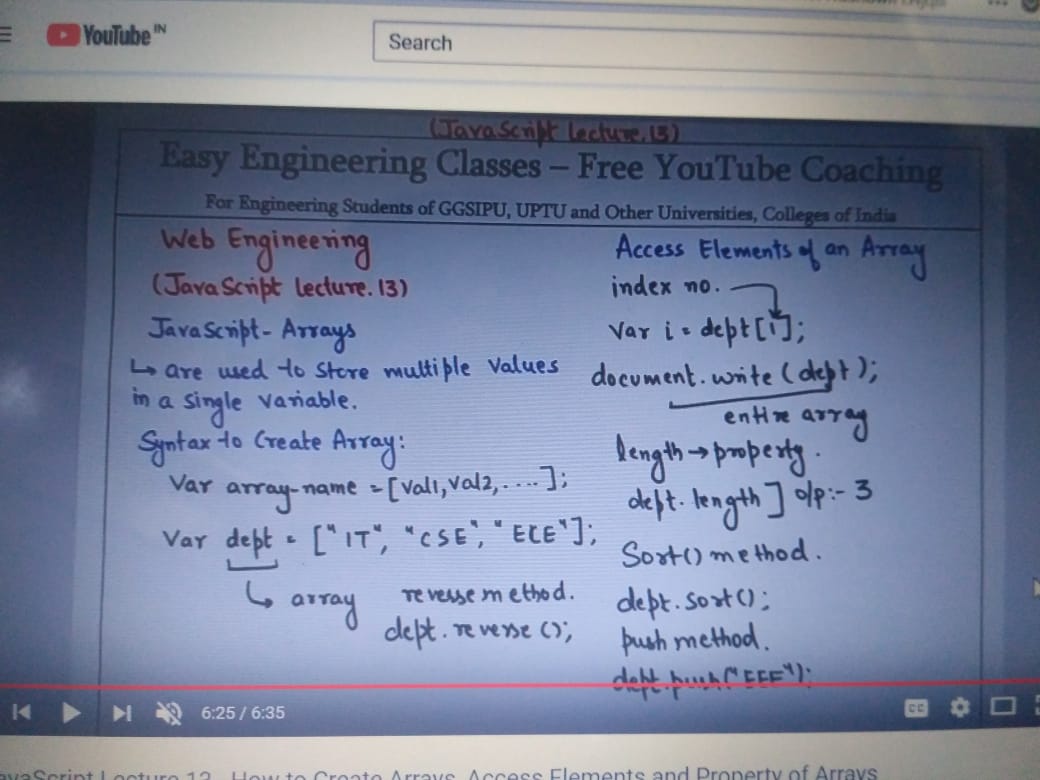 YouTube IN
Search
(JavaScript lecture.13)
Easy Engineering Classes – Free YouTube Coaching
For Engineering Students of GGSIPU, UPTU and Other Universities, Colleges of India
Web Engineering
(JavaScript lecture.13)
JavaScript-Arrays
↳ are used to store multiple values
in a single variable.
Syntax to Create Array:
Var array-name = [val1, val2, ....];
Var dept = ["IT", "CSE", "ECE"];
↳ array
reverse method.
dept.reverse();
Access Elements of an Array
index no.
Var i = dept[i];
document.write(dept);
entire array
length → property.
dept.length] o/p:- 3
Sort() method.
dept.sort();
push method.
dept.push("EEE");
6:25 / 6:35
CC
JavaScript Lecture 13 How to Create Arrays, Access Elements and Property of Arrays